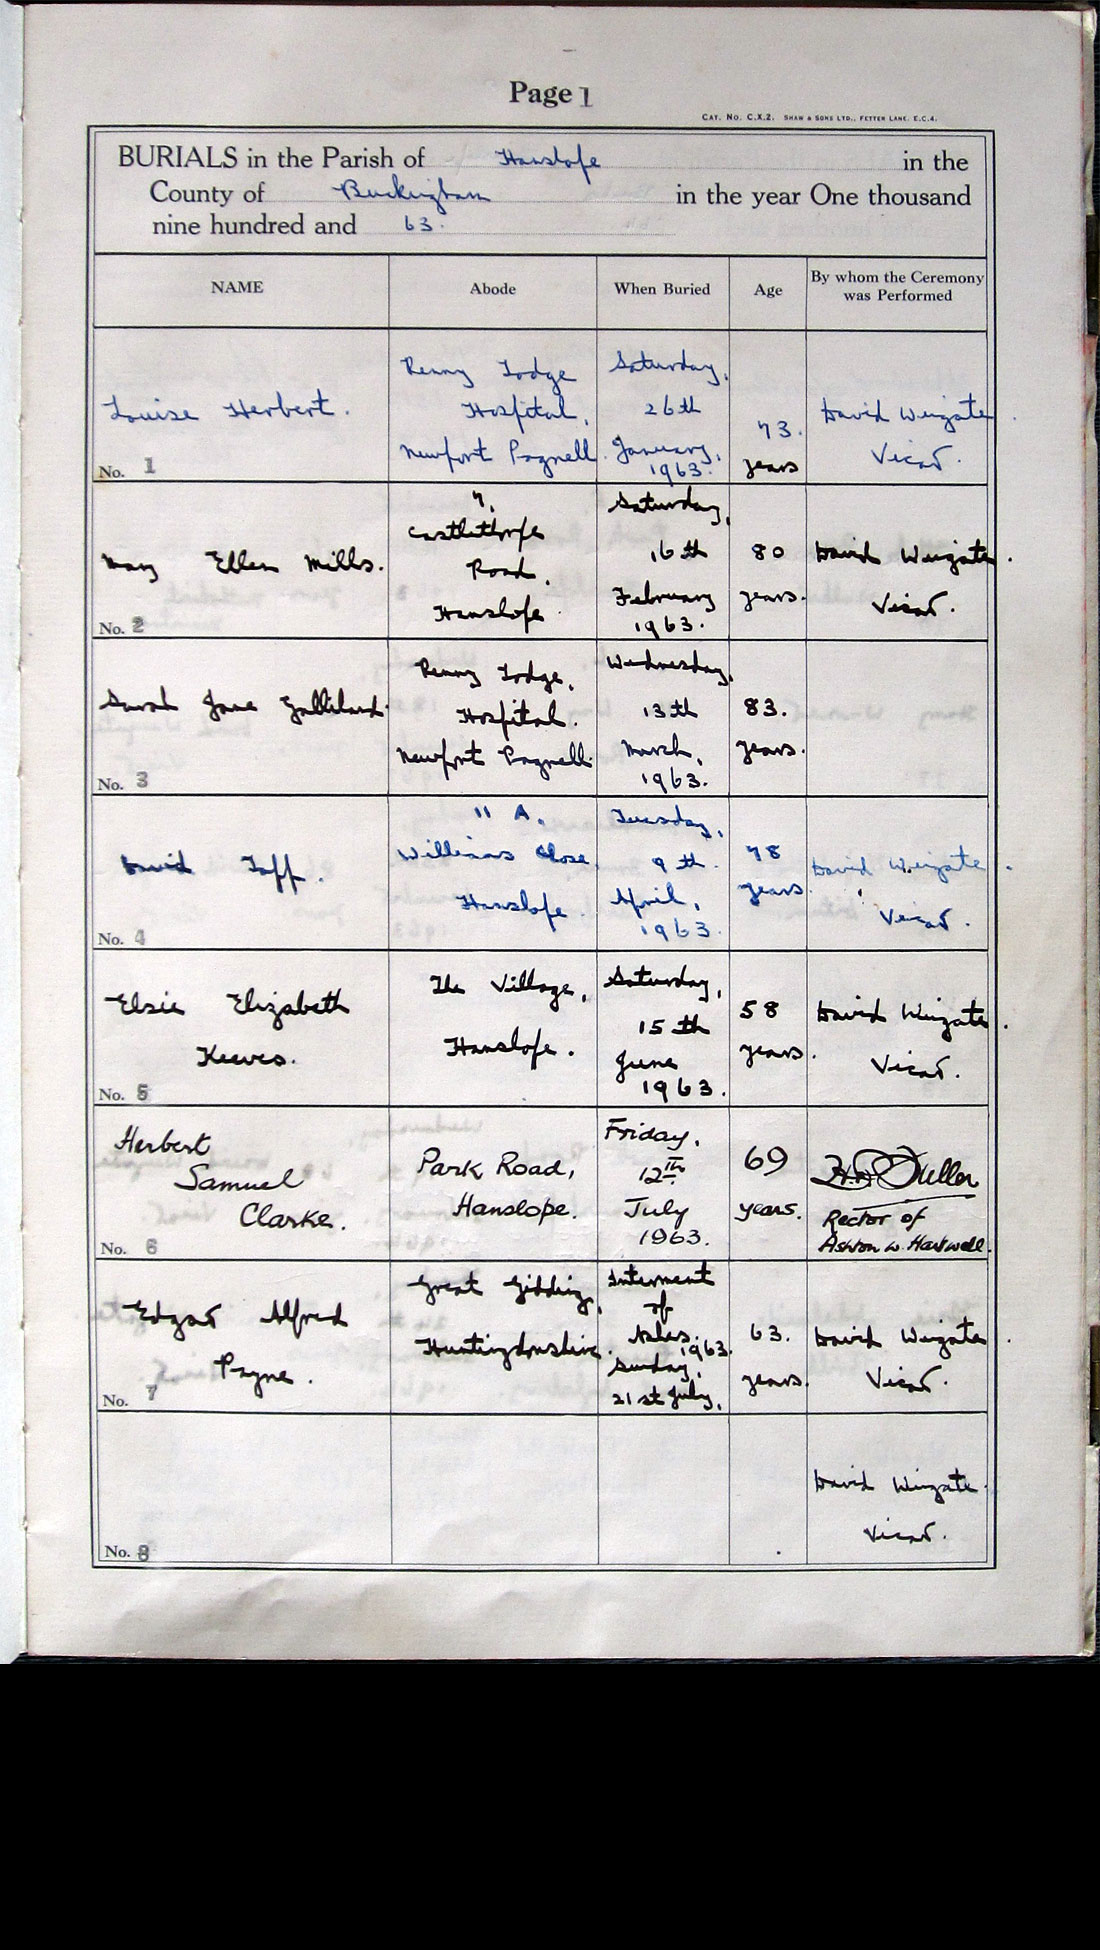 Page 1
CAT. No. C.X.2. SHAW & SONS LTD., FETTER LANE. E.C.4.
BURIALS in the Parish of Hanslope in the
County of Buckingham in the year One thousand
nine hundred and 63.
NAME
Abode
When Buried
Age
By whom the Ceremony
was Performed
Louise Herbert.
No. 1
Renny Lodge
Hospital,
Newfort Pagnell.
Saturday,
26th
January,
1963.
73.
years
David Wingate
Vicar.
Mary Ellen Mills.
No. 2
7,
Castlethorpe
Road.
Hanslope.
Saturday,
16th
February
1963.
80
years.
David Wingate.
Vicar.
Sarah Jane
No. 3
Renny Lodge,
Hospital.
Newport Pagnell.
Wednesday,
13th
March,
1963.
83.
years.
David
No. 4
11 A,
Williams Close,
Hanslope.
Tuesday,
9th
April,
1963.
78
years.
David Wingate.
Vicar.
Elsie Elizabeth
Keeves.
No. 5
The Village,
Hanslope.
Saturday,
15th
June
1963.
58
years.
David Wingate.
Vicar.
Herbert
Samuel
Clarke.
No. 6
Park Road,
Hanslope.
Friday,
12th
July
1963.
69
years.
Fuller
Rector of
Ashton w. Hartwell.
Edgar Alfred
Payne.
No. 7
Great Gidding,
Huntingdonshire.
Interment
of
Ashes. 1963.
Sunday,
21st July,
63.
years.
David Wingate.
Vicar.
No. 8
David Wingate.
Vicar.